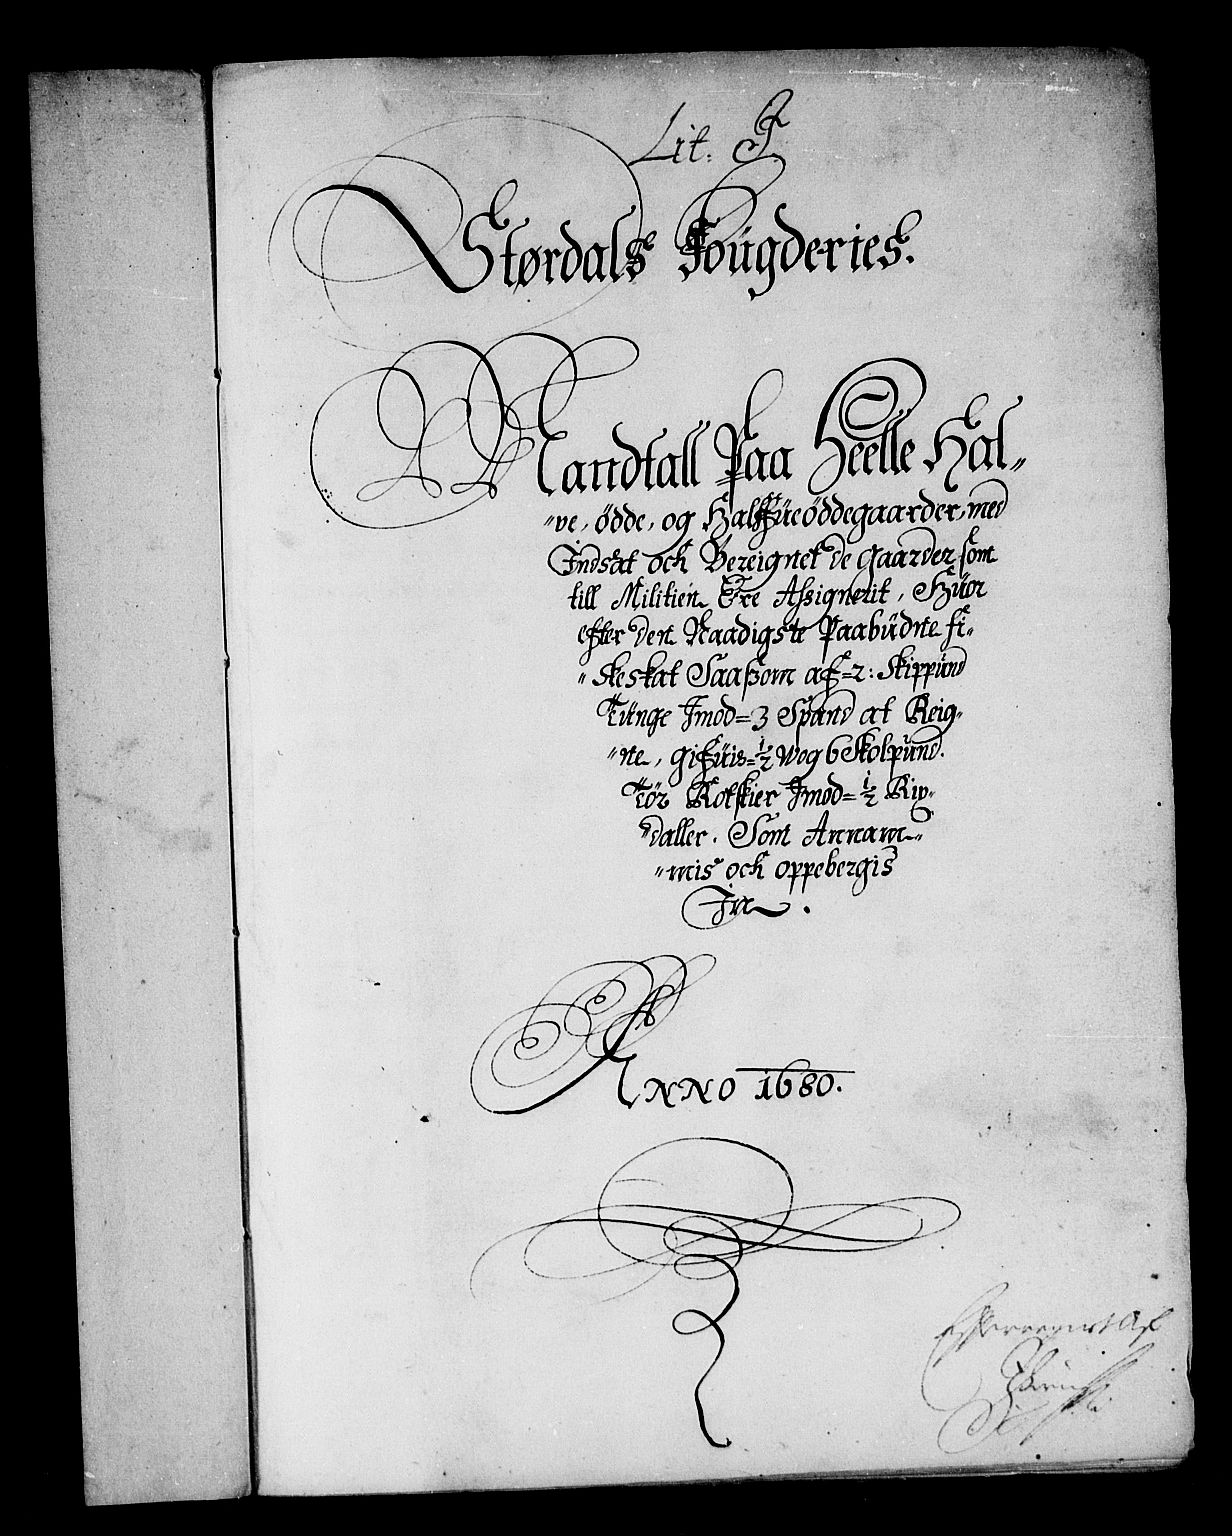 Lit. F.
Størdals Fougderies.
Mandtall Paa Heelle Hal-
-ve, ødde, og Halffüeøddegaarder, med
Indsat ock Bereignet de Gaarder som
till Militien Ere Assignerit, Hüor
efter den Naadigste Paabüdne fi-
-skeskat Saassom aff 2: Skippünd
Tünge Imod 3 Spand at Reig-
-ne, giffüis ½ Wog 6 Skolpünd.
Tör Rotskier Imod ½ Rix-
daller. Som Annam-
-mis ock oppebergis
Fra.
ANNO 1680.